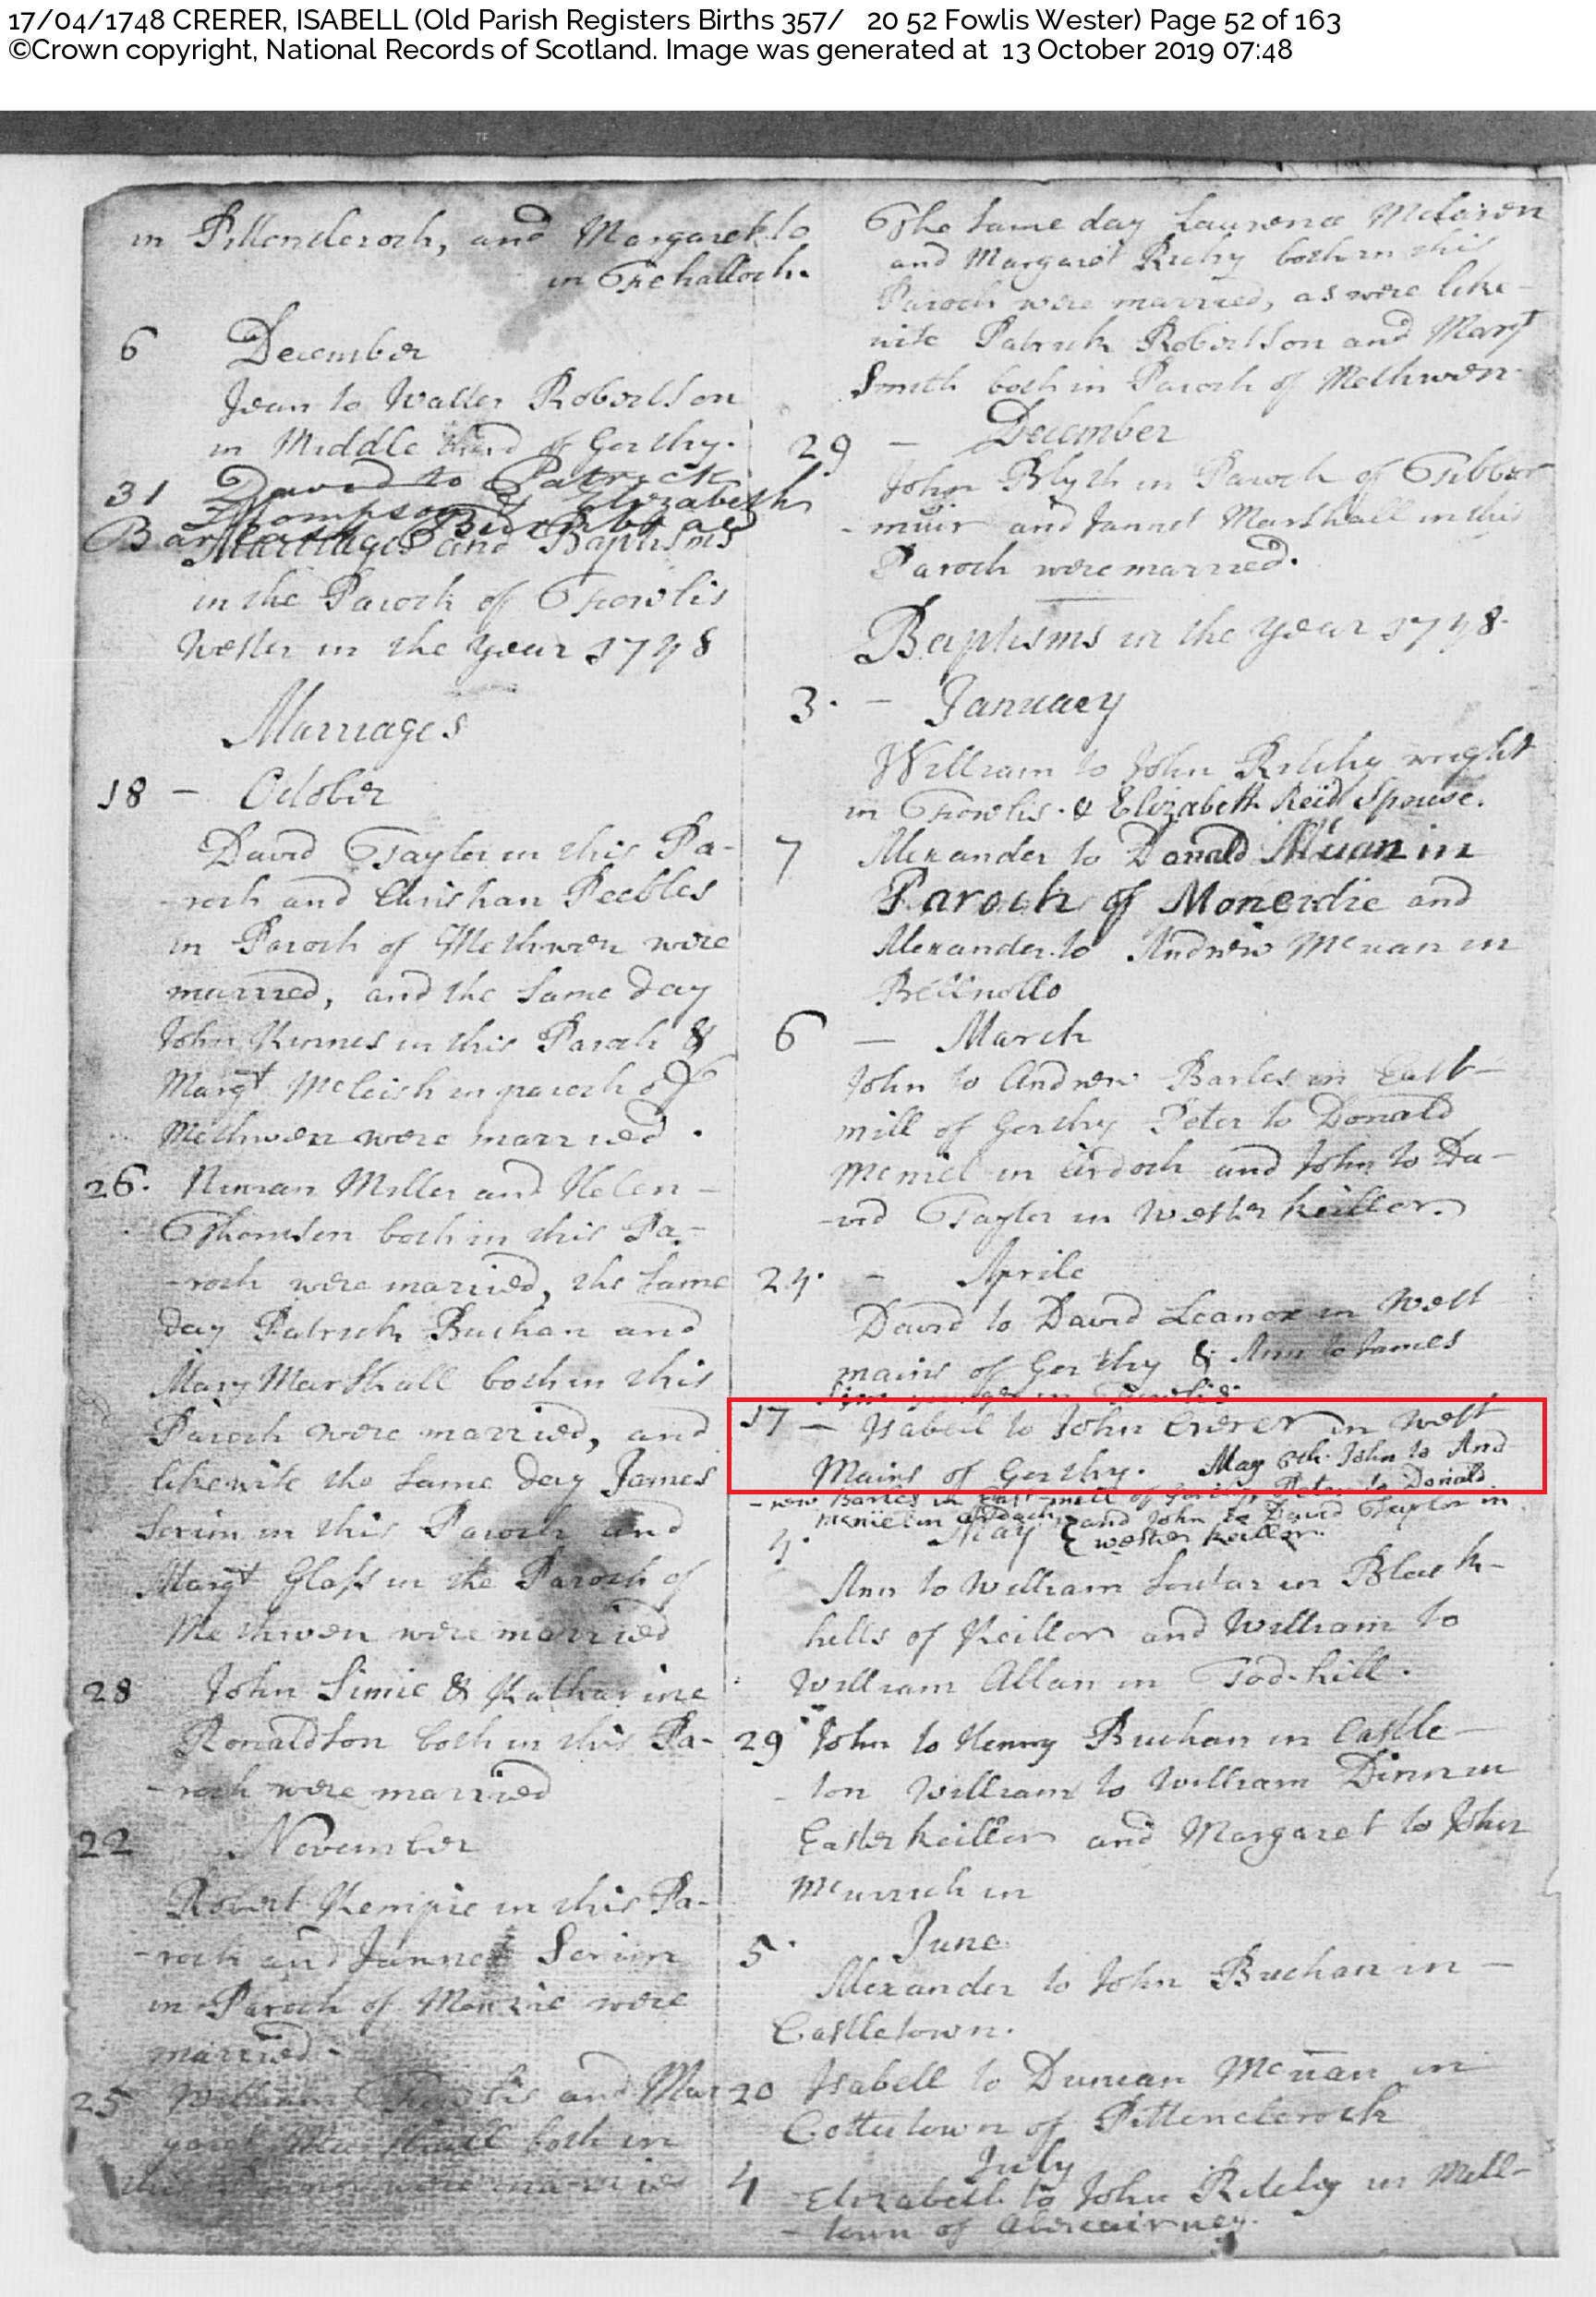 17/04/1748 CRERER, ISABELL (Old Parish Registers Births 357/ 20 52 Fowlis Wester) Page 52 of 163
©Crown copyright, National Records of Scotland. Image was generated at 13 October 2019 07:48
in Pittencleroch, and Margaret to
in Fechalloch.
6 December
Jean to Walter Robertson
in Middle third of Gorthy.
31 David to Patrick
Thompson & Elizabeth
Marriages and Baptisms
in the Paroch of Fowlis
Wester in the year 1748
Marriages
18 — October
David Taylor in this Pa-
-roch and Christian Peebles
in Paroch of Methwen were
married, and the same day
John Kinnes in this Paroch &
Margt McLeish in paroch of
Methwen were married.
26. Ninian Miller and Helen
Thomson both in this Pa-
-roch were married, the same
day Patrick Buchan and
Mary Marshall both in this
Paroch were married, and
likewise the same day James
Scrim in this Paroch and
Margt Glass in the Paroch of
Methwen were married
28 John Simie & Katharine
Ronaldson both in this Pa-
-roch were married
22 November
Robert Kempie in this Pa-
-roch and Jannet Scrim
in Paroch of Monzie were
married -
25 William and Mar
both in
this were married
The same day Laurence McLaren
and Margaret Richy both in this
Paroch were married, as were like-
wise Patrick Robertson and Margt
Smith both in Paroch of Methwen
29 — December
John Blyth in Paroch of Tibber
-muir and Jannet Marshall in this
Paroch were married.
Baptisms in the year 1748.
3. — January
William to John Ritchy wright
in Fowlis. & Elizabeth Reid Spouse.
7 Alexander to Donald in
Paroch of Moneidie and
Alexander to Andrew McUan in
Bellnollo
6 — March
John to Andrew Barles in East-
mill of Gorthy Peter to Donald
McNiel in Ardoch and John to Da-
-vid Taylor in Wester Keillor.
24. — Aprile
David to David Leanox in West
mains of Gorthy & Ann to James
Sim younger in Fowlis.
17 — Isabell to John Crerer in West
Mains of Gorthy. May 6th John to And
-rew Barles in East-mill of Gorthy Peter to Donald
McNiel in Ardoch, and John to David Taylor in
4. May { wester Keillor.
Ann to William Soutar in Black-
hills of Keillor and William to
William Allan in Tod-hill.
29 John to Henry Buchan in Castle-
-ton William to William Dinn in
Easter Keillor and Margaret to John
McUrrich in
5. June
Alexander to John Buchan in —
Castletown.
20 Isabell to Duncan McUan in
Cottertown of Pittencleroch
July
4 Elizabeth to John Ritchy in Mill-
-town of Abercairney.